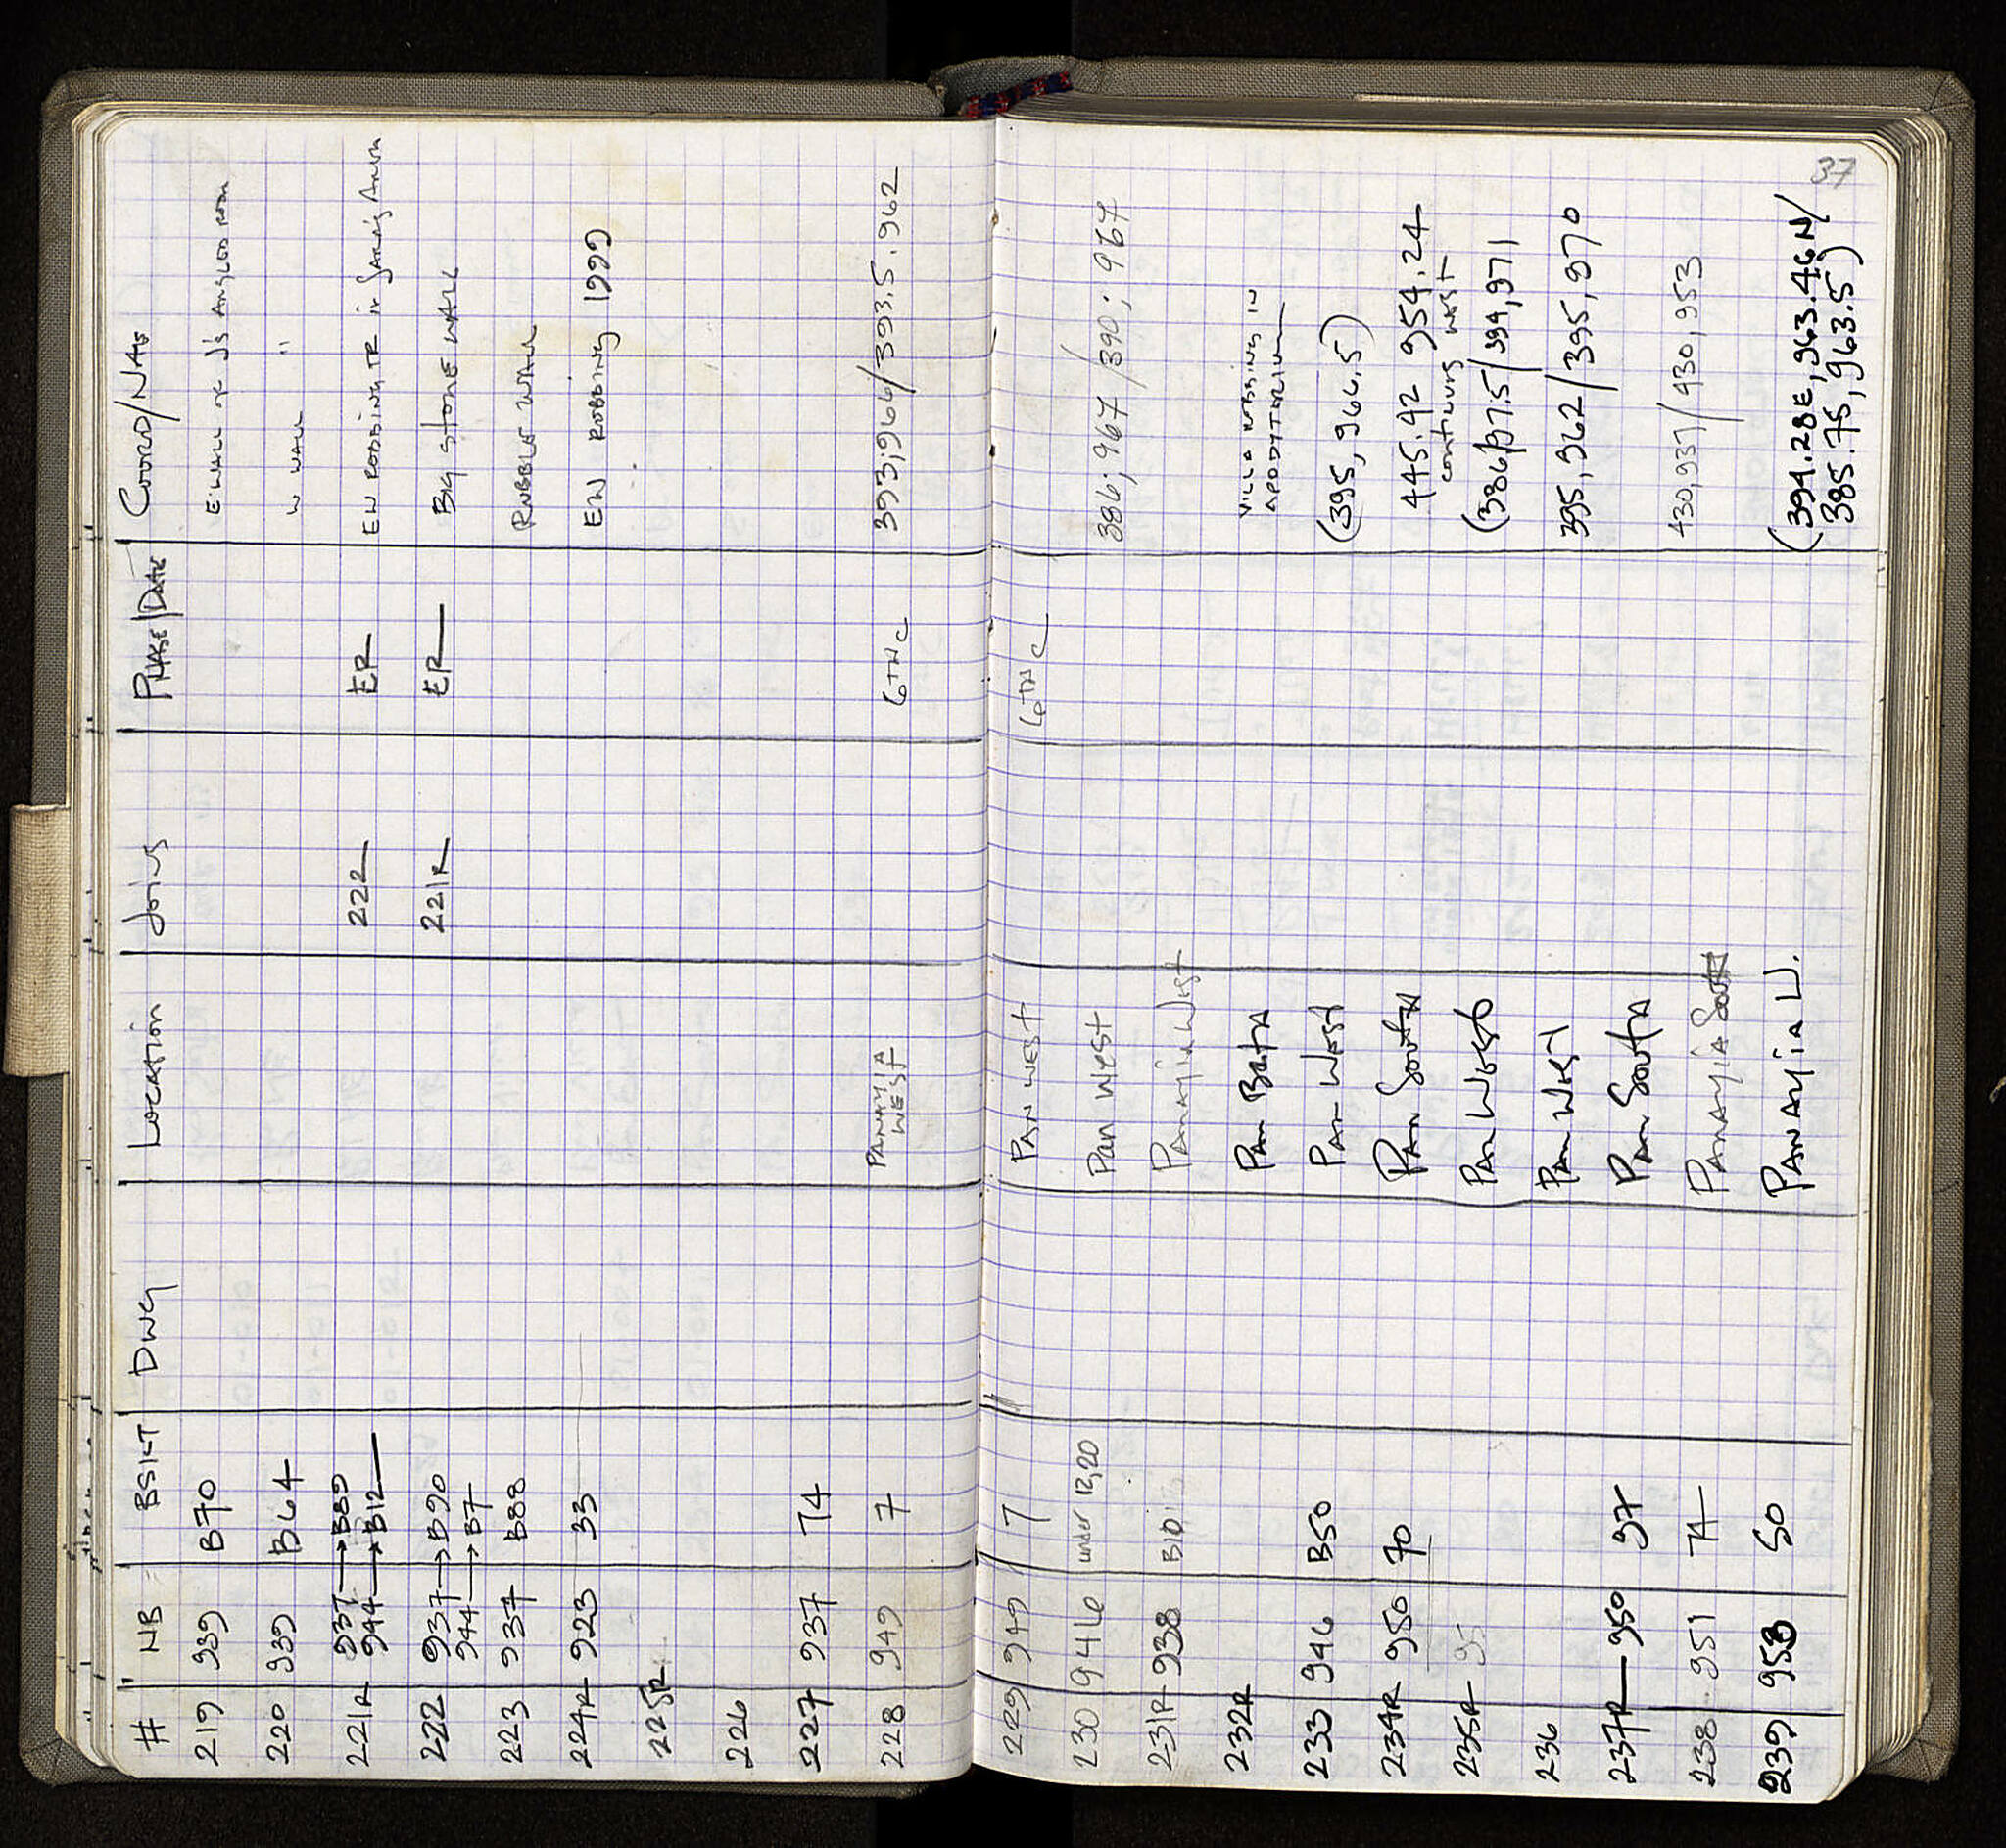 # NB BSKT DWG Location Joins PHASE/DATE COORD/NATE
219 939 B70 E. WALL OF J's ANGLED ROOM
220 939 B64 W WALL "
221R 937→B89 222 ER EW ROBBING TR in
944→B12
222 937→B90 221R ER BIG STONE WALL
944→B7
223 937 B88 RUBBLE WALL
224R 923 33 EW ROBBING 1999
225R
226
227 937 74
228 949 7 PANAYIA 6TH C 393,966/393.5,962
WEST
37
229 949 7 PAN WEST 6TH C
230 946 under 12,20 Pan West 386; 967/390; 967
231R 938 PANAYIA West
232R Pan Bath VILLA ROBBING IN
APODYTERIUM
233 946 B50 PAN West (395, 966.5)
234R 950 70 Pan South 445.42 954.24
continues west
235R 95 Pan West (386/97.5/394,971
236 Pan West 395,962/395,970
237R 950 97 Pan South
238 951 74 PANAYIA South 430,937/430,953
239 953 50 PANAYIA W. (394.28E, 963.46N/
385.75, 963.5)